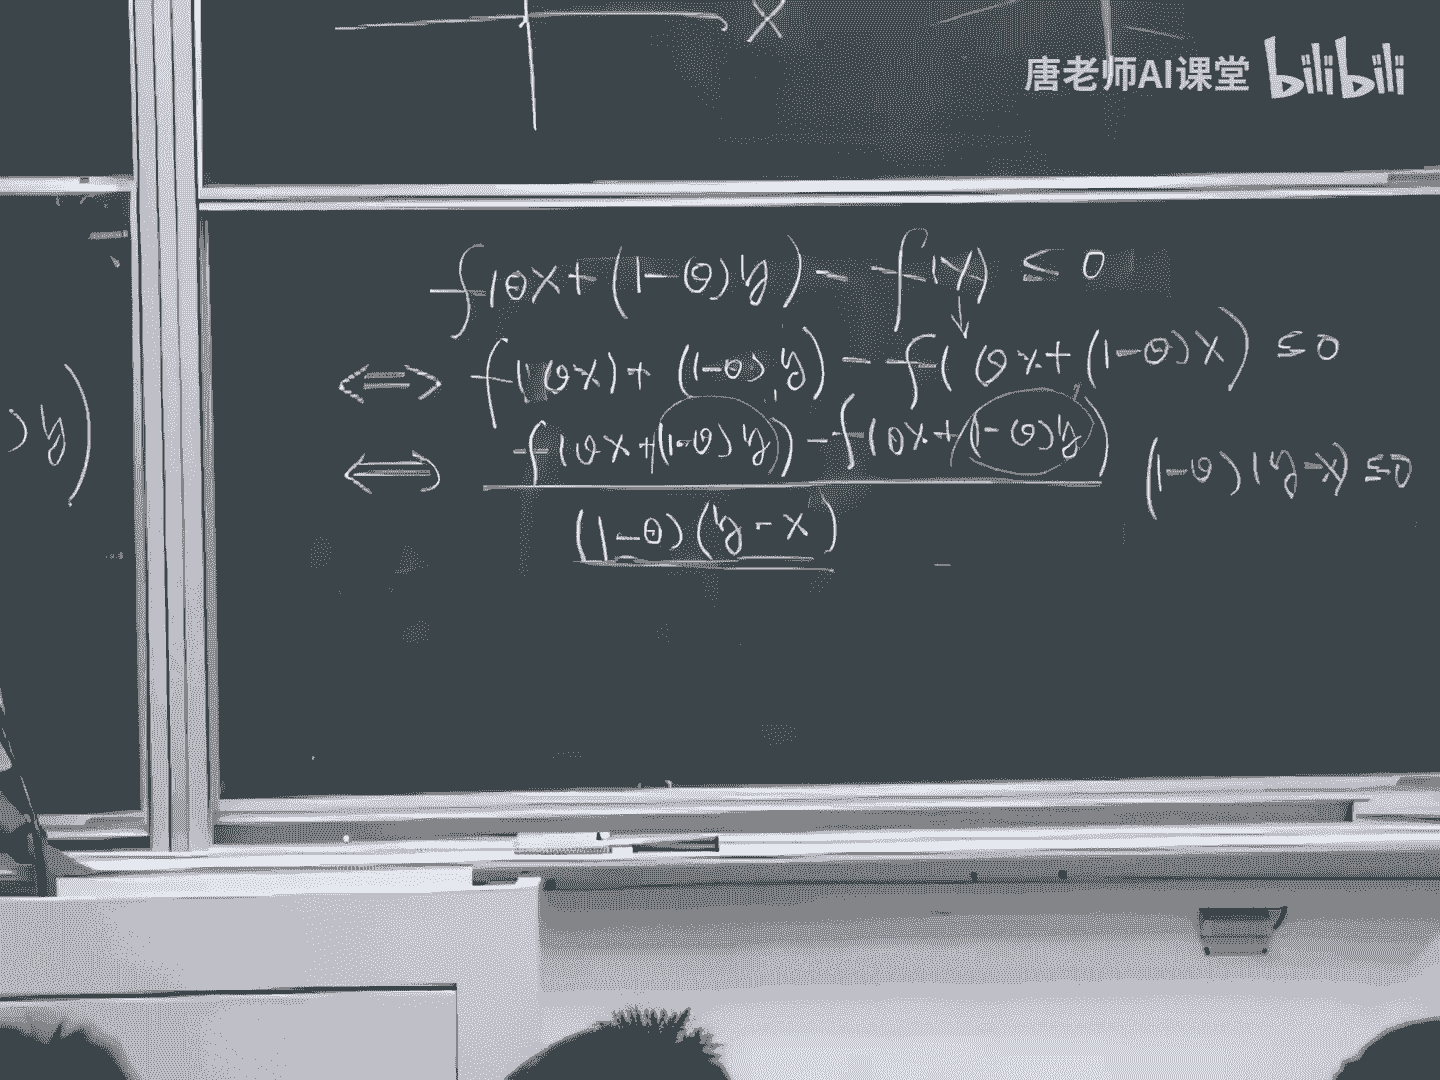 X
唐老师AI课堂 bilibili
f(θx+(1-θ)y) - f(x) ≤ 0
⟺ f((θx)+(1-θ)y) - f(θx+(1-θ)x) ≤ 0
)y)
⟺ f(θx+(1-θ)y) - f(θx+(1-θ)y) (1-θ)(y-x) ≤0
(1-θ)(y-x)